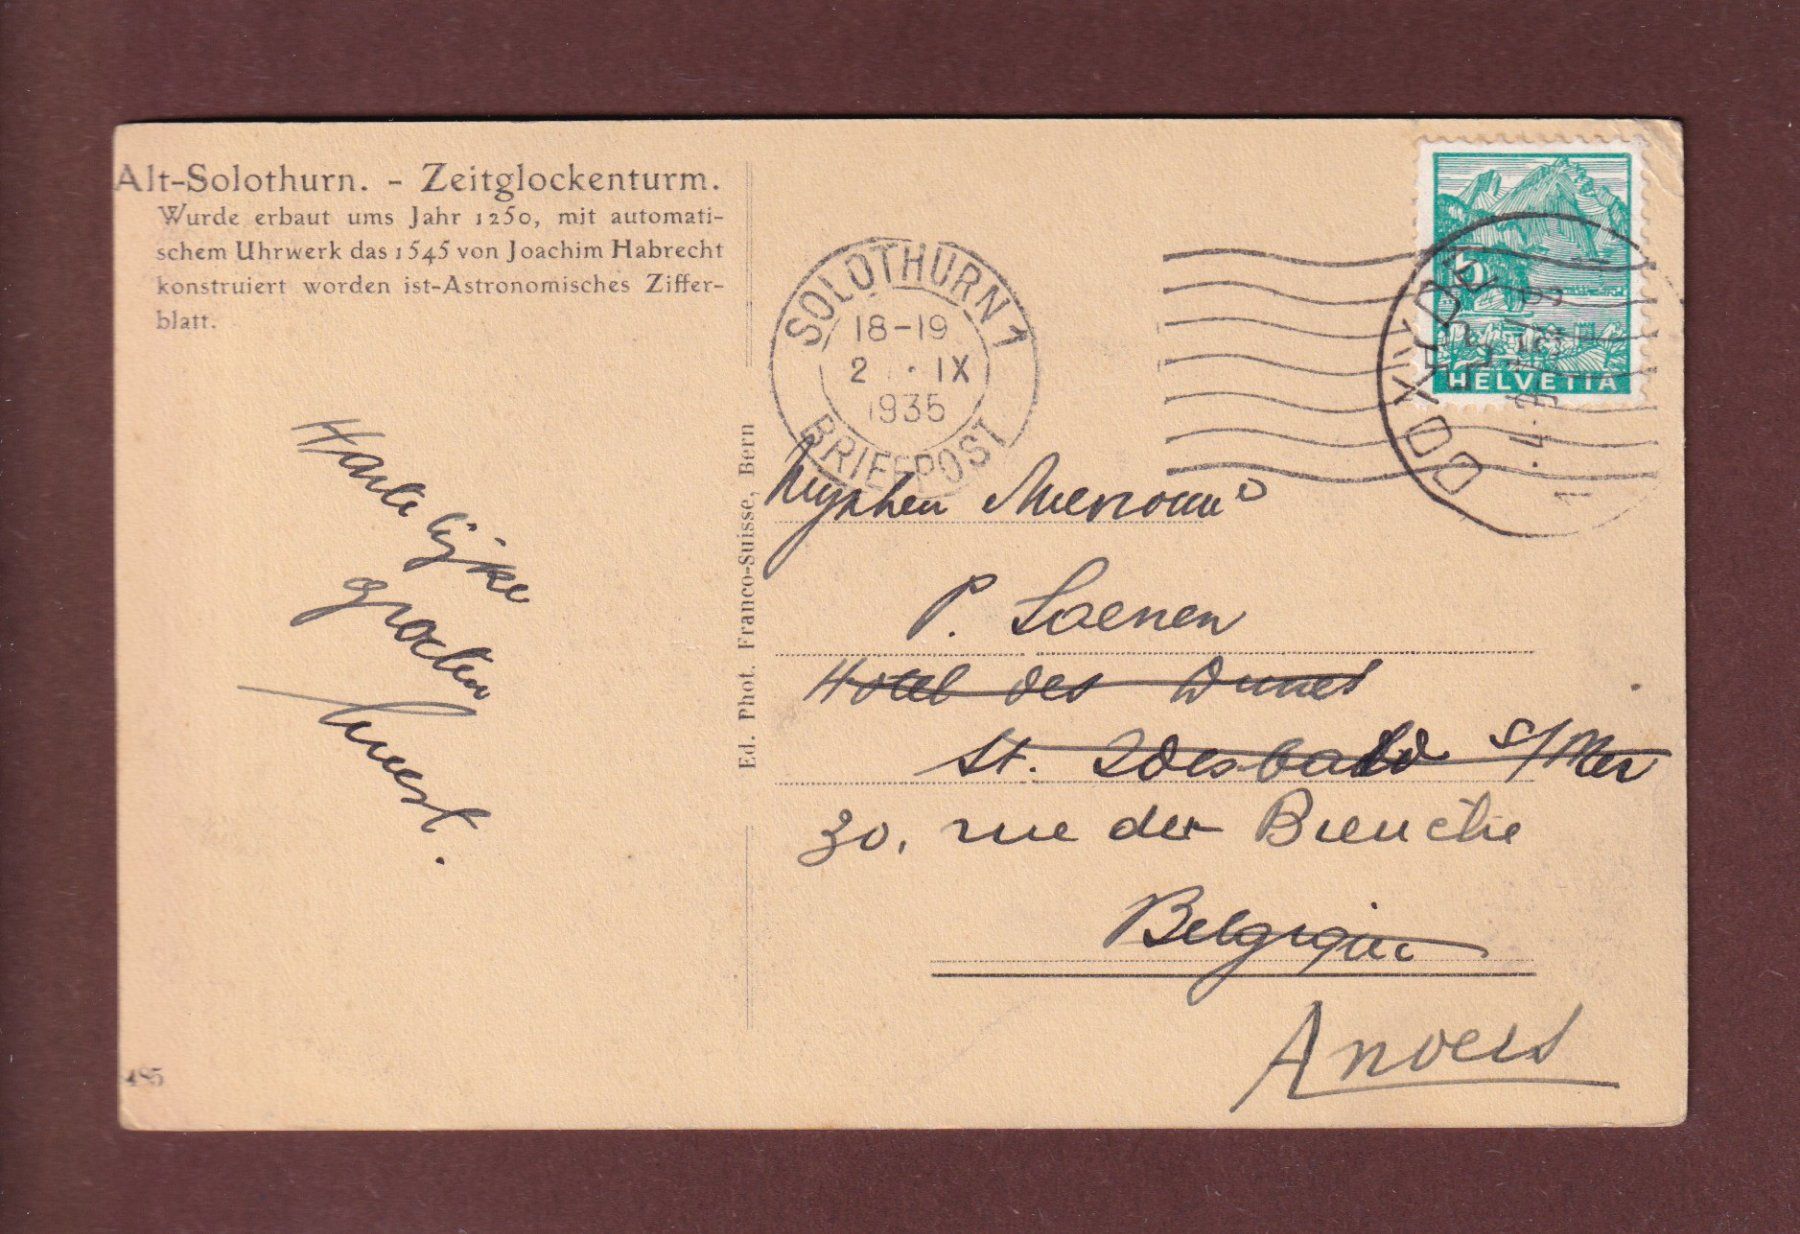 Alt-Solothurn. - Zeitglockenturm.
Wurde erbaut ums Jahr 1250, mit automati-
schem Uhrwerk das 1545 von Joachim Habrecht
konstruiert worden ist-Astronomisches Ziffer-
blatt.
SOLOTHURN 1
18-19
2 · IX
1935
BRIEFPOST
5
HELVETIA
1
Hartelijke
groeten
Ed. Phot. Franco-Suisse, Bern
P. Saenen
Hotel des Dunes
St. Idesbald s/Mer
30, rue der
Belgique
Anvers
485